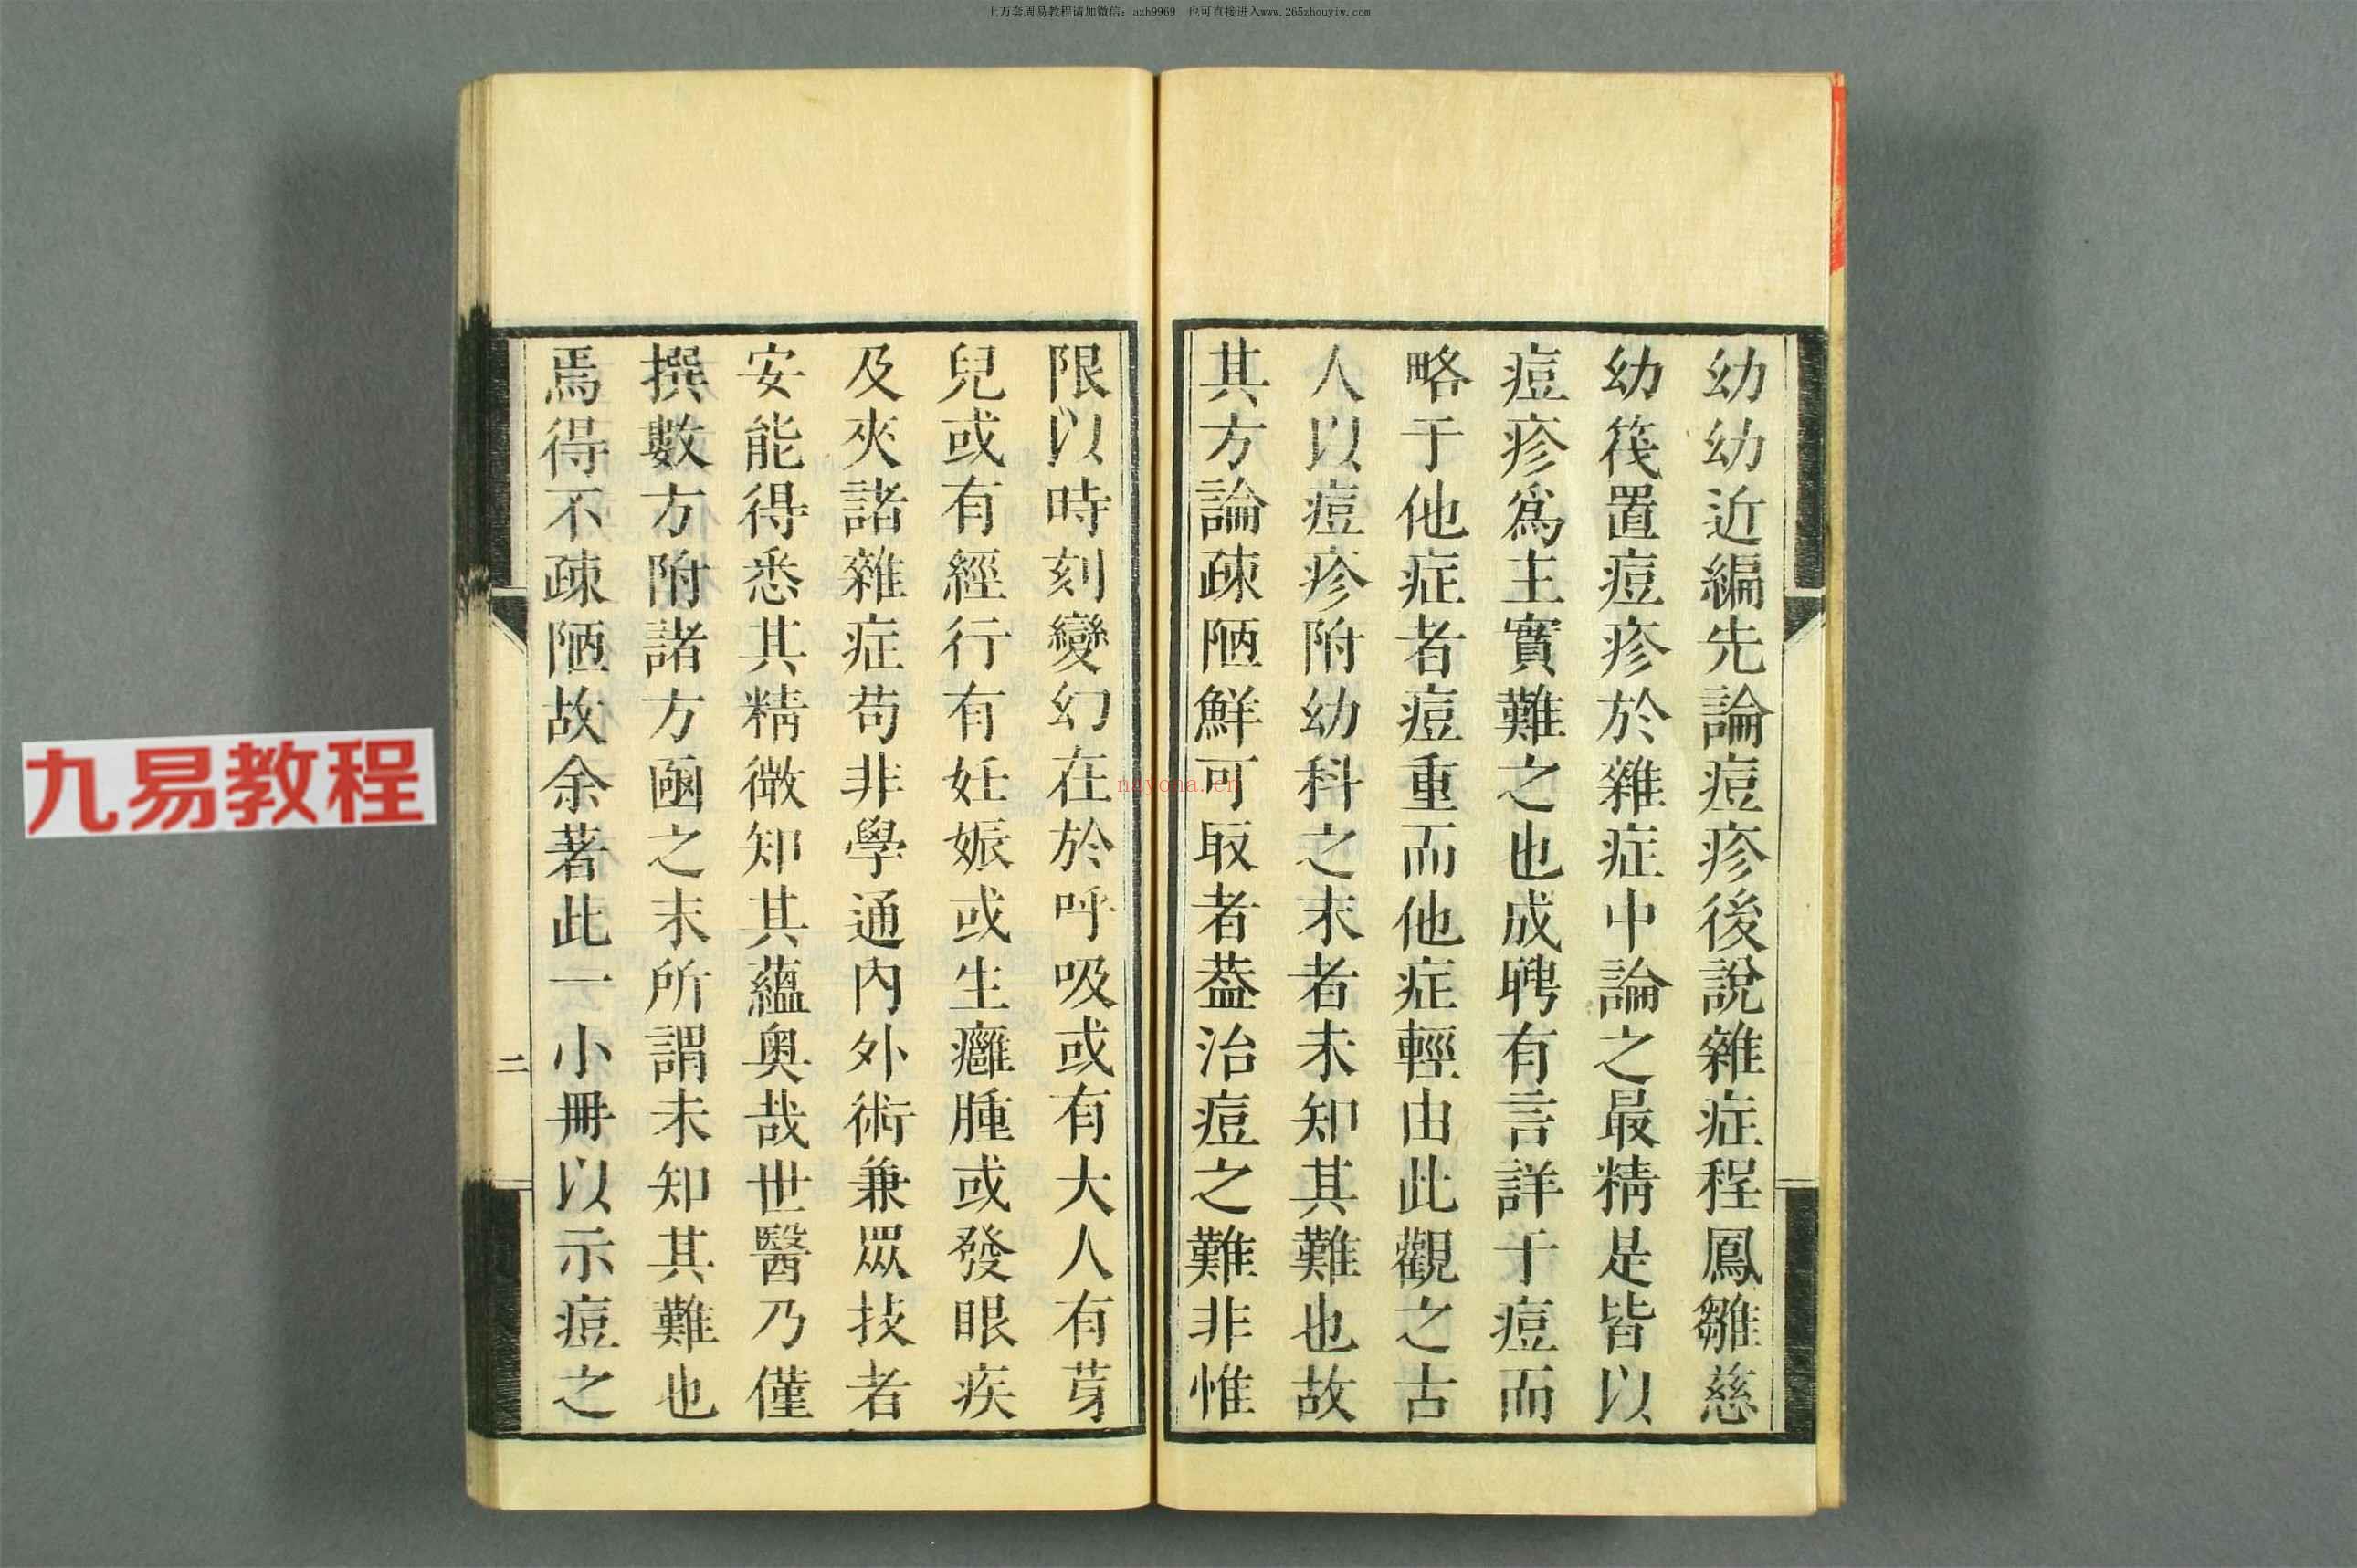 上万套周易教程请加微信：azh9969 也可直接进入www.265zhouyiw.com
幼幼近編先論痘疹後說雜症程鳳雛慈
幼筏置痘疹於雜症中論之最精是皆以
痘疹爲主實難之也成聘有言詳于痘而
略于他症者痘重而他症輕由此觀之古
人以痘疹附幼科之末者未知其難也故
其方論疎陋鮮可取者葢治痘之難非惟
限以時刻變幻在於呼吸或有大人有芽
兒或有經行有妊娠或生癰腫或發眼疾
及夾諸雜症苟非學通內外術兼眾技者
安能得悉其精微知其蘊奧哉世醫乃僅
撰數方附諸方凾之末所謂未知其難也
焉得不疎陋故余著此一小冊以示痘之
二
九易教程
nayona.cn